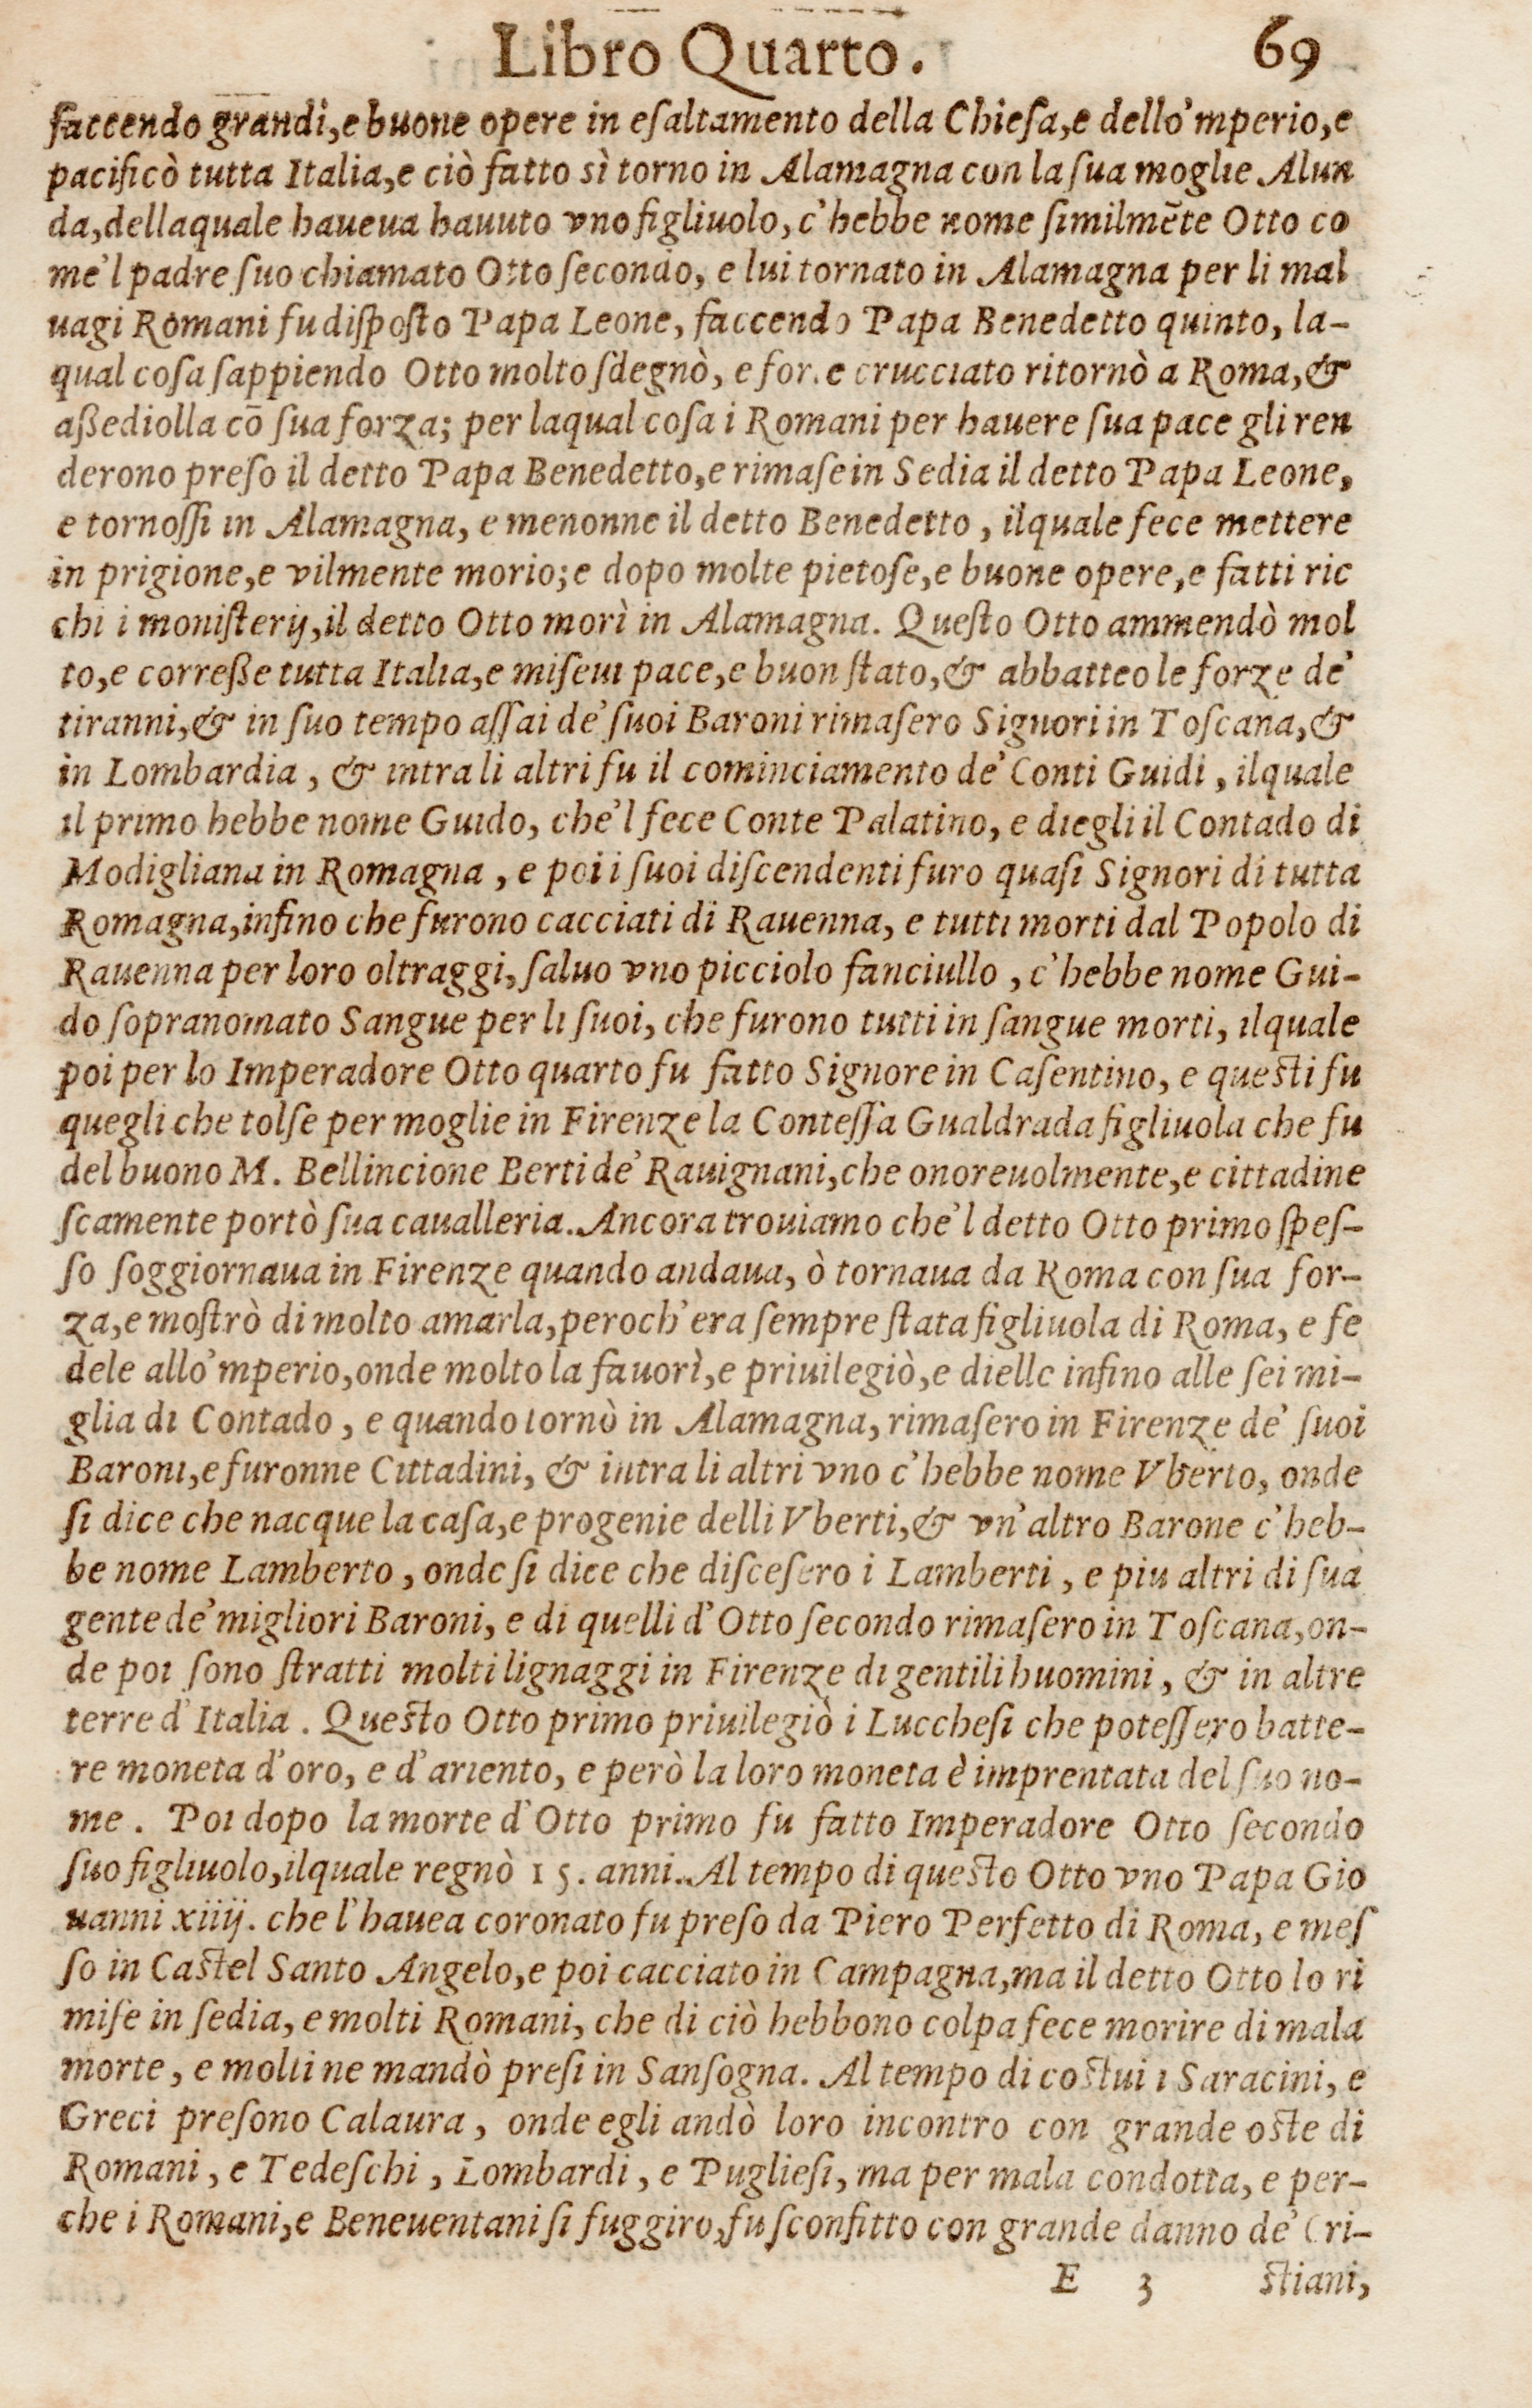 Libro Quarto. 69
faccendo grandi, e buone opere in eſaltamento della Chieſa, e dello'mperio, e
pacificò tutta Italia, e ciò fatto sì torno in Alamagna con la ſua moglie Alun
da, dellaquale haueua hauuto vno figliuolo, c'hebbe nome ſimilmẽte Otto co
me'l padre ſuo chiamato Otto ſecondo, e lui tornato in Alamagna per li mal
uagi Romani fu diſpoſto Papa Leone, faccendo Papa Benedetto quinto, la-
qual coſa ſappiendo Otto molto ſdegnò, e forte crucciato ritornò a Roma, &
aßediolla cõ ſua forza; per laqual coſa i Romani per hauere ſua pace gli ren
derono preſo il detto Papa Benedetto, e rimaſe in Sedia il detto Papa Leone,
e tornoſſi in Alamagna, e menonne il detto Benedetto, ilquale fece mettere
in prigione, e vilmente morio; e dopo molte pietoſe, e buone opere, e fatti ric
chi i moniſterij, il detto Otto morì in Alamagna. Queſto Otto ammendò mol
to, e correße tutta Italia, e miſeui pace, e buon ſtato, & abbatteo le forze de'
tiranni, & in ſuo tempo aſſai de' ſuoi Baroni rimaſero Signori in Toſcana, &
in Lombardia, & intra li altri fu il cominciamento de' Conti Guidi, ilquale
il primo hebbe nome Guido, che'l fece Conte Palatino, e diegli il Contado di
Modigliana in Romagna, e poi i ſuoi diſcendenti furo quaſi Signori di tutta
Romagna, infino che furono cacciati di Rauenna, e tutti morti dal Popolo di
Rauenna per loro oltraggi, ſaluo vno picciolo fanciullo, c'hebbe nome Gui-
do ſopranomato Sangue per li ſuoi, che furono tutti in ſangue morti, ilquale
poi per lo Imperadore Otto quarto fu fatto Signore in Caſentino, e queſti fu
quegli che tolſe per moglie in Firenze la Conteſſa Gualdrada figliuola che fu
del buono M. Bellincione Berti de' Rauignani, che onoreuolmente, e cittadine
ſcamente portò ſua caualleria. Ancora trouiamo che'l detto Otto primo ſpeſ-
ſo ſoggiornaua in Firenze quando andaua, ò tornaua da Roma con ſua for-
za, e moſtrò di molto amarla, peroch'era ſempre ſtata figliuola di Roma, e fe
dele allo'mperio, onde molto la fauorì, e priuilegiò, e dielle infino alle ſei mi-
glia di Contado, e quando tornò in Alamagna, rimaſero in Firenze de' ſuoi
Baroni, e furonne Cittadini, & intra li altri vno c'hebbe nome Vberto, onde
ſi dice che nacque la caſa, e progenie delli Vberti, & vn'altro Barone c'heb-
be nome Lamberto, onde ſi dice che diſceſero i Lamberti, e piu altri di ſua
gente de' migliori Baroni, e di quelli d'Otto ſecondo rimaſero in Toſcana, on-
de poi ſono ſtratti molti lignaggi in Firenze di gentili huomini, & in altre
terre d'Italia. Queſto Otto primo priuilegiò i Luccheſi che poteſſero batte-
re moneta d'oro, e d'ariento, e però la loro moneta è imprentata del ſuo no-
me. Poi dopo la morte d'Otto primo fu fatto Imperadore Otto ſecondo
ſuo figliuolo, ilquale regnò 15. anni. Al tempo di queſto Otto vno Papa Gio
uanni xiiij. che l'hauea coronato fu preſo da Piero Perfetto di Roma, e meſ
ſo in Caſtel Santo Angelo, e poi cacciato in Campagna, ma il detto Otto lo ri
miſe in ſedia, e molti Romani, che di ciò hebbono colpa fece morire di mala
morte, e molti ne mandò preſi in Sanſogna. Al tempo di coſtui i Saracini, e
Greci preſono Calaura, onde egli andò loro incontro con grande oſte di
Romani, e Tedeſchi, Lombardi, e Puglieſi, ma per mala condotta, e per-
che i Romani, e Beneuentani ſi fuggiro, fu ſconfitto con grande danno de' Cri-
E 3 ſtiani,